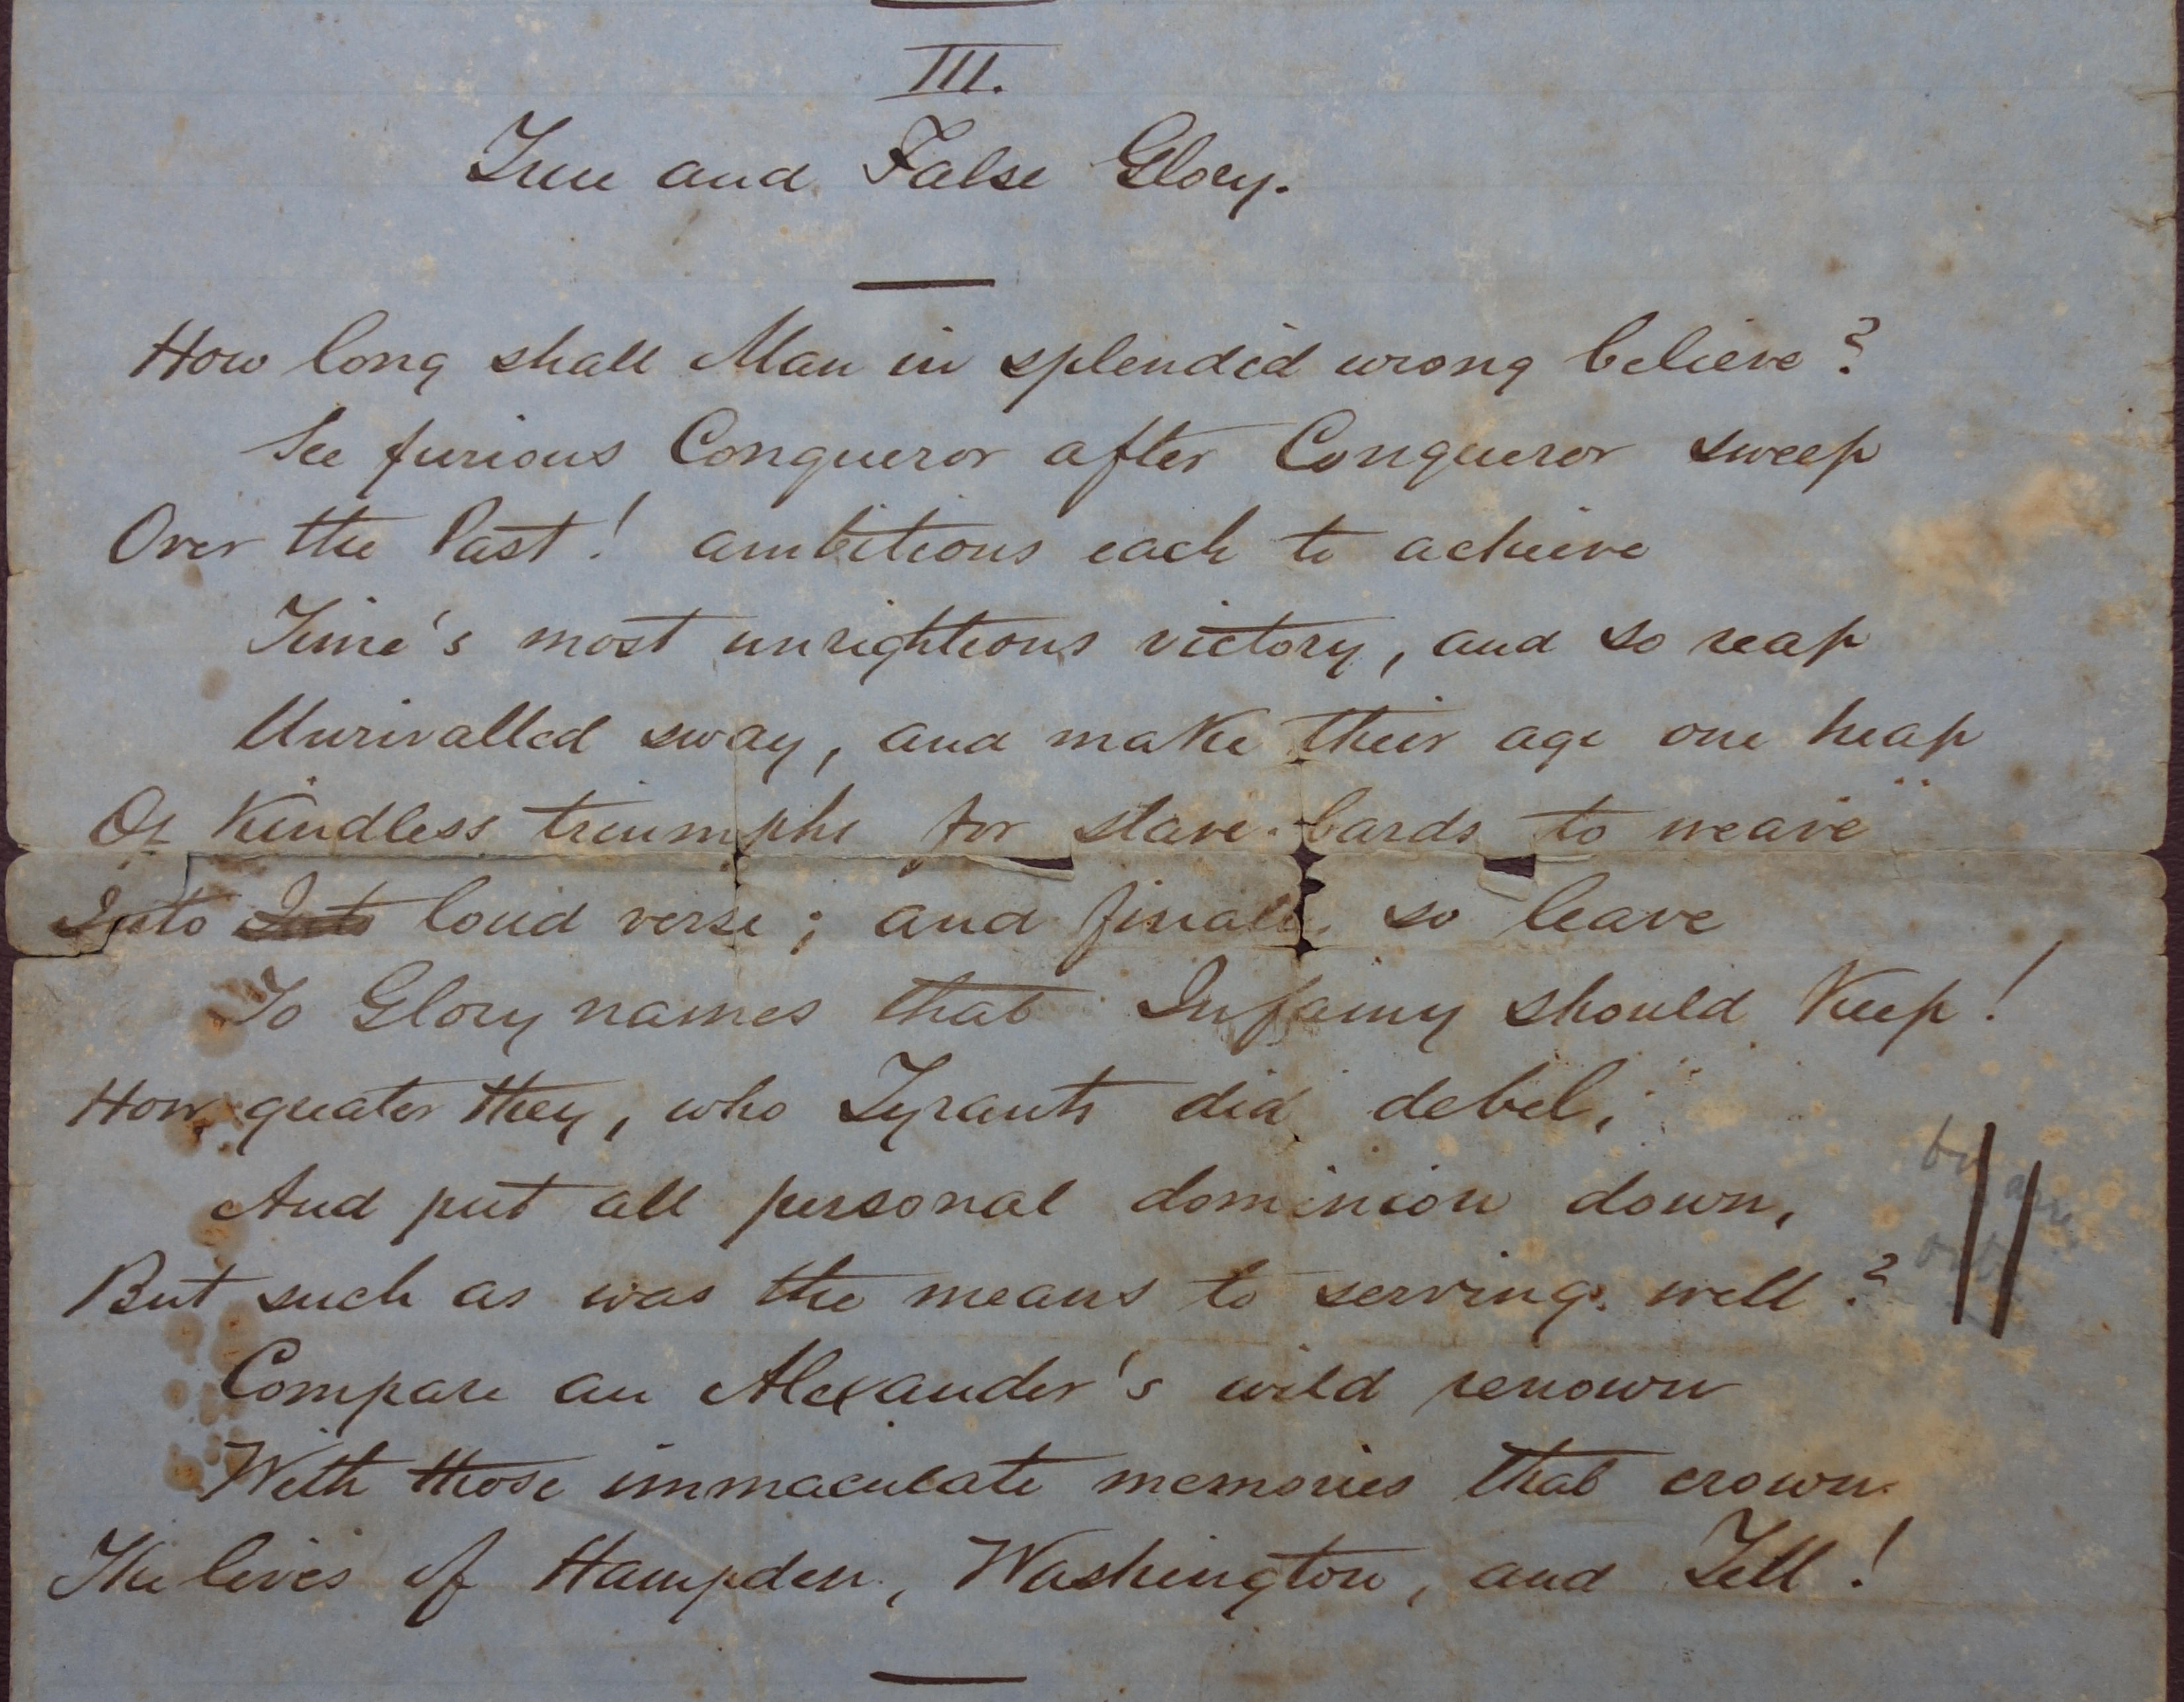 III.
True and False Glory.
How long shall Man in splendid wrong believe?
See furious Conqueror after Conqueror sweep
Over the Past! ambitious each to achieve
Time's most unrighteous victory, and so reap
Unrivalled sway, and make their age one heap
Of kindless triumphs for slave-bards to weave
Into Into loud verse; and so leave
To Glory names that Infamy should keep!
How greater they, who Tyrants did debel,
And put all personal dominion down,
But such as was the means to serving well?
Compare an Alexander's wild renown
With those immaculate memories that crown
The lives of Hampden, Washington, and Tell!